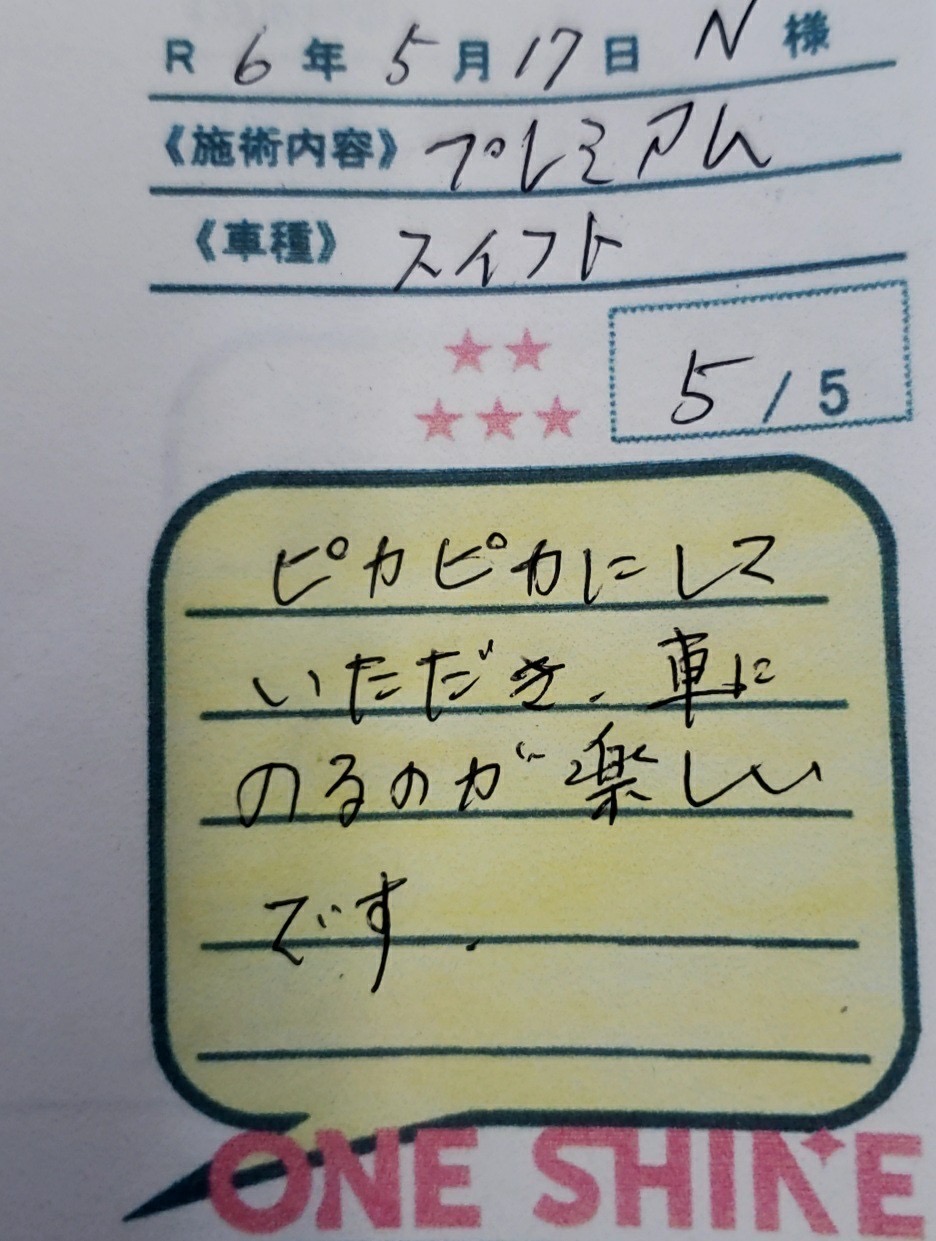 R 6年 5月 17日 N 様
《施術内容》 プレミアム
《車種》 スイフト
★★
★★★
5/5
ピカピカにして
いただき、車に
のるのが楽しい
です.
ONE SHINE